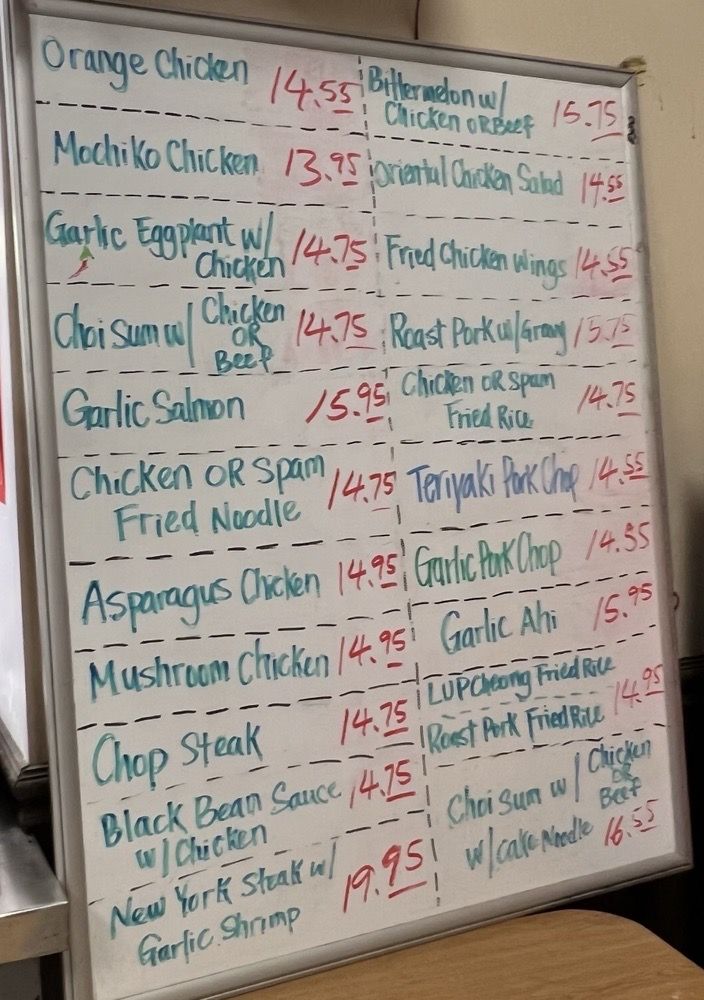 Orange Chicken 14.55
Mochiko Chicken 13.95
Garlic Eggplant w/
Chicken 14.75
Choi Sum w/ Chicken
OR
Beef 14.75
Garlic Salmon 15.95
Chicken OR Spam
Fried Noodle 14.75
Asparagus Chicken 14.95
Mushroom Chicken 14.95
Chop Steak 14.75
Black Bean Sauce
w/ Chicken 14.75
New York Steak w/
Garlic Shrimp 19.95
Bittermelon w/
Chicken OR Beef 15.75
Oriental Chicken Salad 14.55
Fried Chicken Wings 14.55
Roast Pork w/ Gravy 15.75
Chicken OR Spam
Fried Rice 14.75
Teriyaki Pork Chop 14.55
Garlic Pork Chop 14.55
Garlic Ahi 15.95
LUP Cheong Fried Rice
Roast Pork Fried Rice 14.95
Choi Sum w/ Chicken
OR
Beef
w/ Cake Noodle 16.55